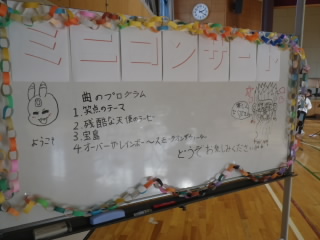 ミニコンサート
曲のプログラム
1. 笑点のテーマ
2. 残酷な天使のテーゼ
3. 宝島
4. オーバー・ザ・レインボー〜
ようこそ
どうぞお楽しみください